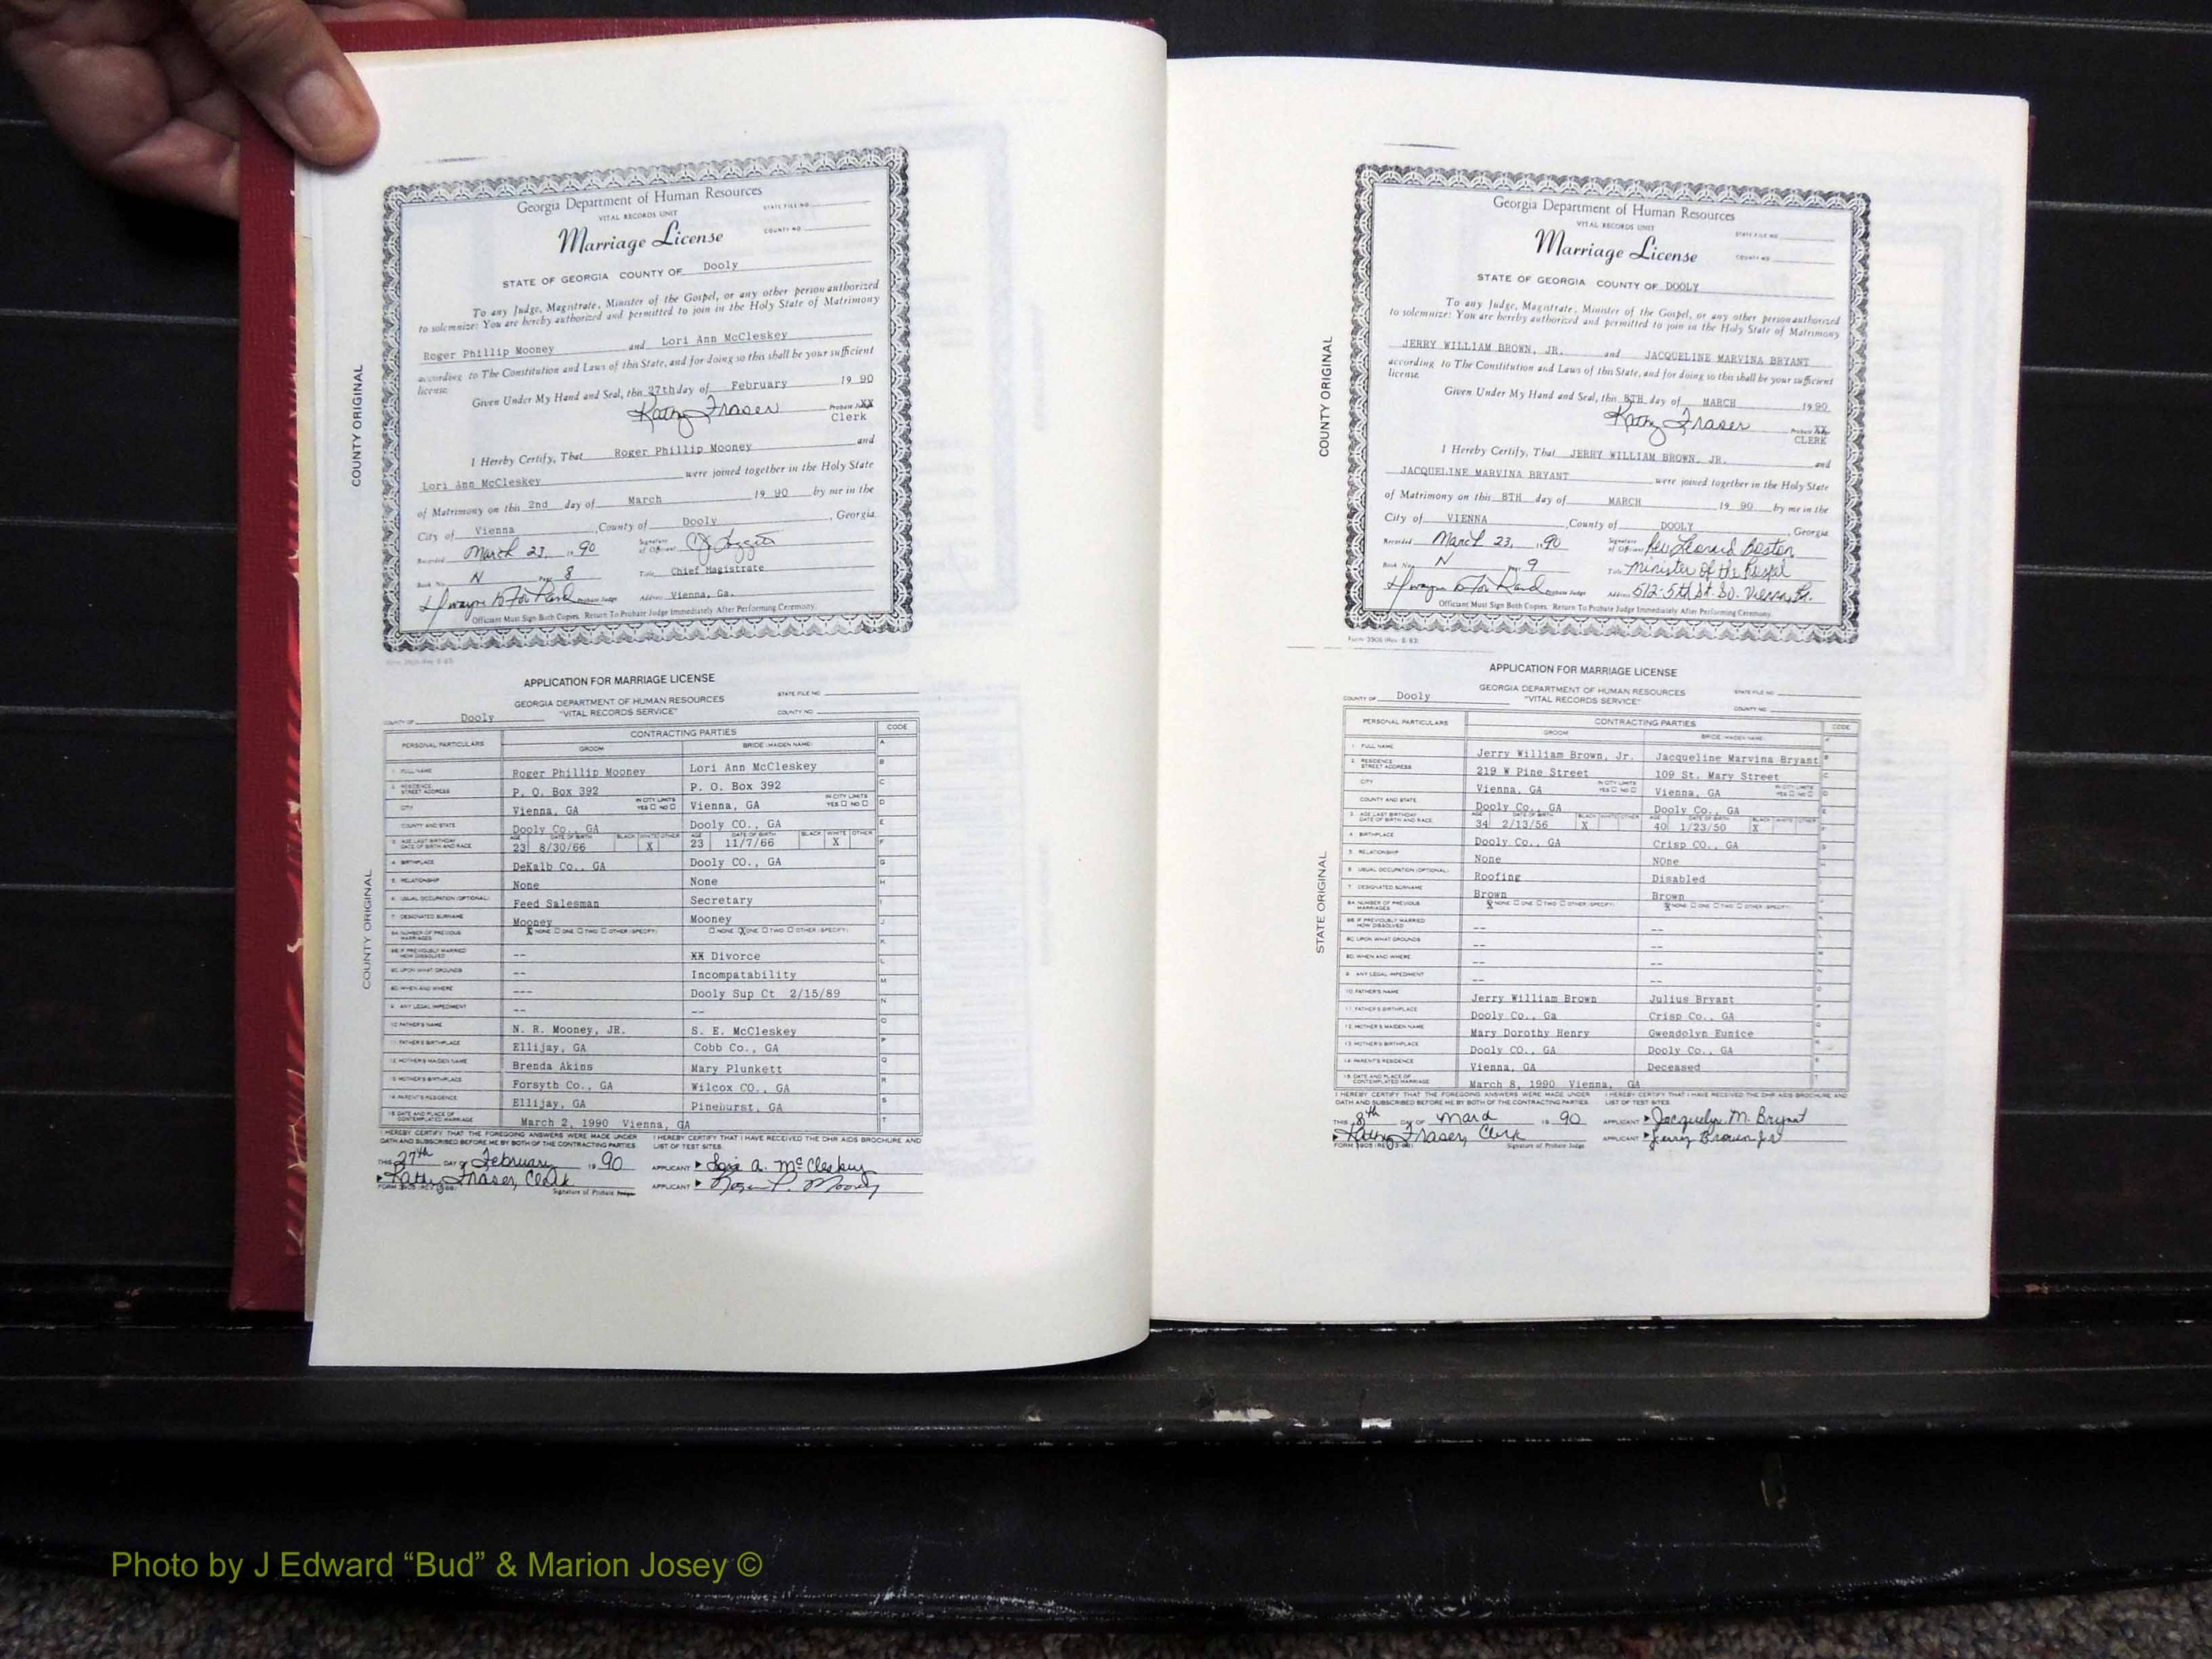 Georgia Department of Human Resources
VITAL RECORDS UNIT
STATE FILE NO.
Marriage License
COUNTY NO.
STATE OF GEORGIA COUNTY OF Dooly
To any Judge, Magistrate, Minister of the Gospel, or any other person authorized
to solemnize: You are hereby authorized and permitted to join in the Holy State of Matrimony
Roger Phillip Mooney and Lori Ann McCleskey
according to The Constitution and Laws of this State, and for doing so this shall be your sufficient
license.
Given Under My Hand and Seal, this 27th day of February 19 90
Kathy Fraser Probate XX
Clerk
I Hereby Certify, That Roger Phillip Mooney and
Lori Ann McCleskey were joined together in the Holy State
of Matrimony on this 2nd day of March 19 90 by me in the
City of Vienna, County of Dooly, Georgia.
Recorded March 23, 1990 Signature of Officiant
Book No. N Page 8 Title Chief Magistrate
Probate Judge Address Vienna, Ga.
Officiant Must Sign Both Copies. Return To Probate Judge Immediately After Performing Ceremony.
COUNTY ORIGINAL
APPLICATION FOR MARRIAGE LICENSE
GEORGIA DEPARTMENT OF HUMAN RESOURCES STATE FILE NO.
COUNTY OF Dooly "VITAL RECORDS SERVICE" COUNTY NO.
PERSONAL PARTICULARS CONTRACTING PARTIES CODE
GROOM BRIDE (MAIDEN NAME) A
1. FULL NAME Roger Phillip Mooney Lori Ann McCleskey B
2. RESIDENCE STREET ADDRESS P. O. Box 392 P. O. Box 392 C
CITY Vienna, GA IN CITY LIMITS YES NO Vienna, GA IN CITY LIMITS YES NO D
COUNTY AND STATE Dooly Co., GA Dooly CO., GA E
3. AGE LAST BIRTHDAY DATE OF BIRTH AND RACE AGE DATE OF BIRTH BLACK WHITE OTHER AGE DATE OF BIRTH BLACK WHITE OTHER
23 8/30/66 X 23 11/7/66 X F
4. BIRTHPLACE DeKalb Co., GA Dooly CO., GA G
5. RELATIONSHIP None None H
6. USUAL OCCUPATION (OPTIONAL) Feed Salesman Secretary I
7. DESIGNATED SURNAME Mooney Mooney J
8A. NUMBER OF PREVIOUS MARRIAGES X NONE ONE TWO OTHER (SPECIFY) NONE X ONE TWO OTHER (SPECIFY)
8B. IF PREVIOUSLY MARRIED HOW DISSOLVED -- XX Divorce K
8C. UPON WHAT GROUNDS -- Incompatability L
8D. WHEN AND WHERE --- Dooly Sup Ct 2/15/89 M
9. ANY LEGAL IMPEDIMENT -- -- N
10. FATHER'S NAME N. R. Mooney, JR. S. E. McCleskey O
11. FATHER'S BIRTHPLACE Ellijay, GA Cobb Co., GA P
12. MOTHER'S MAIDEN NAME Brenda Akins Mary Plunkett Q
13. MOTHER'S BIRTHPLACE Forsyth Co., GA Wilcox CO., GA R
14. PARENT'S RESIDENCE Ellijay, GA Pinehurst, GA S
15. DATE AND PLACE OF CONTEMPLATED MARRIAGE March 2, 1990 Vienna, GA T
I HEREBY CERTIFY THAT THE FOREGOING ANSWERS WERE MADE UNDER
OATH AND SUBSCRIBED BEFORE ME BY BOTH OF THE CONTRACTING PARTIES.
I HEREBY CERTIFY THAT I HAVE RECEIVED THE DHR AIDS BROCHURE AND
LIST OF TEST SITES.
THIS 27th DAY OF February 19 90 APPLICANT Lori A. McCleskey
Kathy Fraser, Clerk APPLICANT Roger P. Mooney
Signature of Probate Judge
COUNTY ORIGINAL
Georgia Department of Human Resources
VITAL RECORDS UNIT
STATE FILE NO.
Marriage License
COUNTY NO.
STATE OF GEORGIA COUNTY OF DOOLY
To any Judge, Magistrate, Minister of the Gospel, or any other person authorized
to solemnize: You are hereby authorized and permitted to join in the Holy State of Matrimony
JERRY WILLIAM BROWN, JR. and JACQUELINE MARVINA BRYANT
according to The Constitution and Laws of this State, and for doing so this shall be your sufficient
license.
Given Under My Hand and Seal, this 8TH day of MARCH 19 90
Kathy Fraser Probate Judge XX
CLERK
I Hereby Certify, That JERRY WILLIAM BROWN, JR. and
JACQUELINE MARVINA BRYANT were joined together in the Holy State
of Matrimony on this 8TH day of MARCH 19 90 by me in the
City of VIENNA, County of DOOLY, Georgia.
Recorded March 23, 1990 Signature of Officiant Rev. Leonard Boston
Book No. N Page 9 Title Minister of the Gospel
Probate Judge Address 512-5th St. So. Vienna, Ga.
Officiant Must Sign Both Copies. Return To Probate Judge Immediately After Performing Ceremony.
Form 3906 (Rev. 8-83)
COUNTY ORIGINAL
APPLICATION FOR MARRIAGE LICENSE
GEORGIA DEPARTMENT OF HUMAN RESOURCES STATE FILE NO.
COUNTY OF Dooly "VITAL RECORDS SERVICE" COUNTY NO.
PERSONAL PARTICULARS CONTRACTING PARTIES CODE
GROOM BRIDE (MAIDEN NAME)
1. FULL NAME Jerry William Brown, Jr. Jacqueline Marvina Bryant
2. RESIDENCE STREET ADDRESS 219 W Pine Street 109 St. Mary Street
CITY Vienna, GA IN CITY LIMITS YES NO Vienna, GA IN CITY LIMITS YES NO
COUNTY AND STATE Dooly Co., GA Dooly Co., GA
3. AGE LAST BIRTHDAY DATE OF BIRTH AND RACE AGE DATE OF BIRTH BLACK WHITE OTHER AGE DATE OF BIRTH BLACK WHITE OTHER
34 2/13/56 X 40 1/23/50 X
4. BIRTHPLACE Dooly Co., GA Crisp CO., GA
5. RELATIONSHIP None NOne
6. USUAL OCCUPATION (OPTIONAL) Roofing Disabled
7. DESIGNATED SURNAME Brown Brown
8A. NUMBER OF PREVIOUS MARRIAGES X NONE ONE TWO OTHER (SPECIFY) X NONE ONE TWO OTHER (SPECIFY)
8B. IF PREVIOUSLY MARRIED HOW DISSOLVED -- --
8C. UPON WHAT GROUNDS -- --
8D. WHEN AND WHERE -- --
9. ANY LEGAL IMPEDIMENT -- --
10. FATHER'S NAME Jerry William Brown Julius Bryant
11. FATHER'S BIRTHPLACE Dooly Co., Ga Crisp Co., GA
12. MOTHER'S MAIDEN NAME Mary Dorothy Henry Gwendolyn Eunice
13. MOTHER'S BIRTHPLACE Dooly CO., GA Dooly Co., GA
14. PARENT'S RESIDENCE Vienna, GA Deceased
15. DATE AND PLACE OF CONTEMPLATED MARRIAGE March 8, 1990 Vienna, GA
I HEREBY CERTIFY THAT THE FOREGOING ANSWERS WERE MADE UNDER
OATH AND SUBSCRIBED BEFORE ME BY BOTH OF THE CONTRACTING PARTIES.
I HEREBY CERTIFY THAT I HAVE RECEIVED THE DHR AIDS BROCHURE AND
LIST OF TEST SITES.
THIS 8th DAY OF March 19 90 APPLICANT Jacquelyn M. Bryant
Kathy Fraser, Clerk APPLICANT Jerry Brown Jr
Signature of Probate Judge
STATE ORIGINAL
Photo by J Edward “Bud” & Marion Josey ©